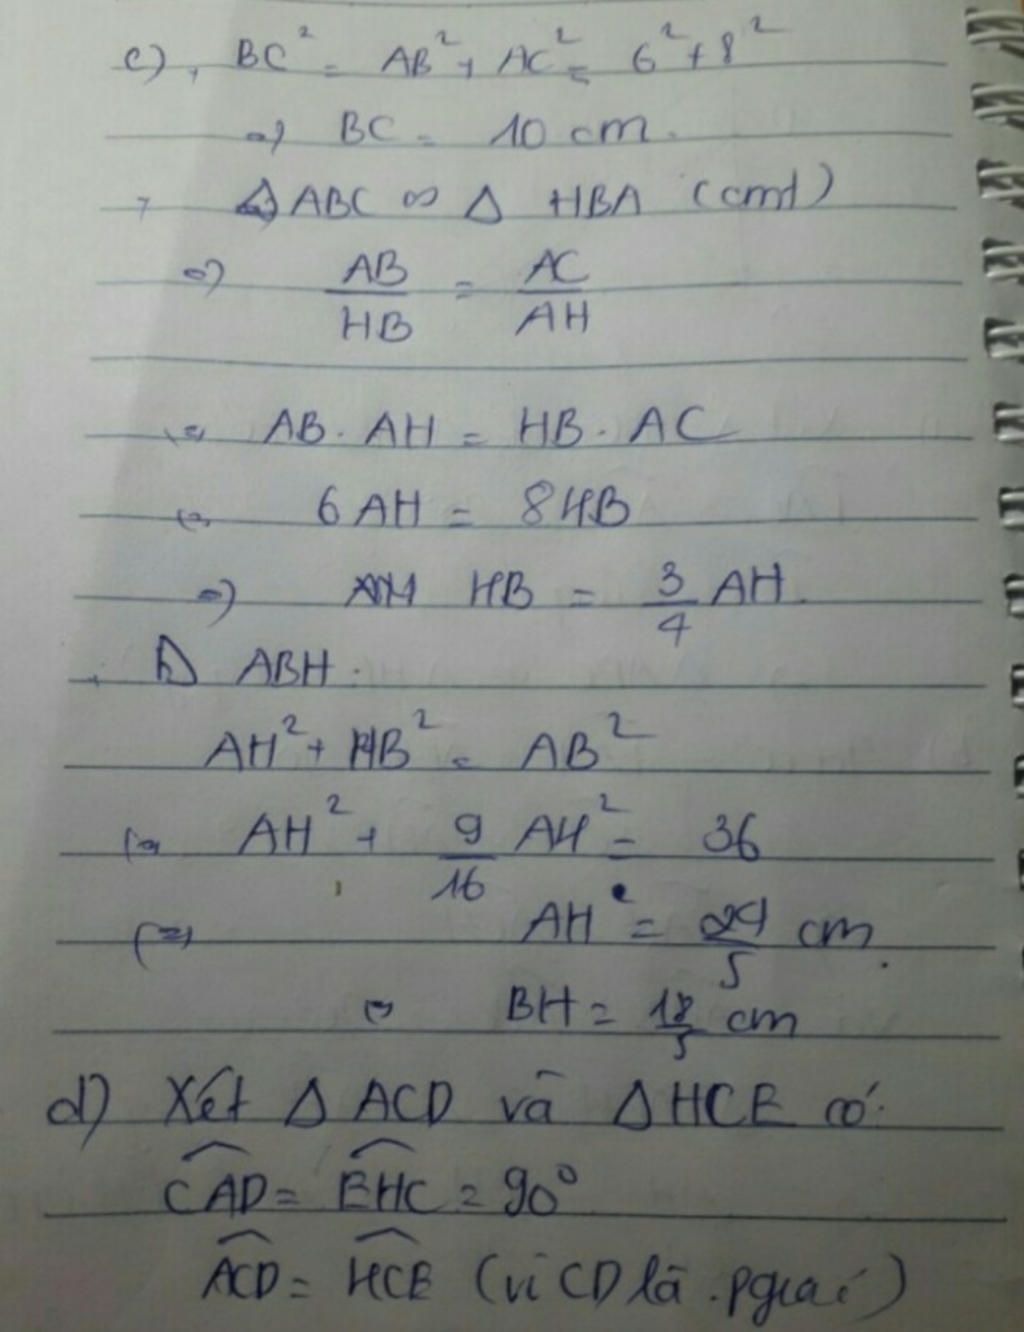 c), BC² = AB² + AC² = 6² + 8²
=> BC = 10 cm.
, △ABC ∽ △ HBA (cmt)
=> AB/HB = AC/AH
<=> AB. AH = HB. AC
<=> 6 AH = 8HB
=> HB = 3/4 AH.
. △ ABH.
AH² + HB² = AB²
<=> AH² + 9/16 AH² = 36
<=> AH = 24/5 cm.
=> BH = 18/5 cm
d) Xét △ ACD và △ HCE có:
CAD = EHC = 90°
ACD = HCE (vì CD là . pgiác)